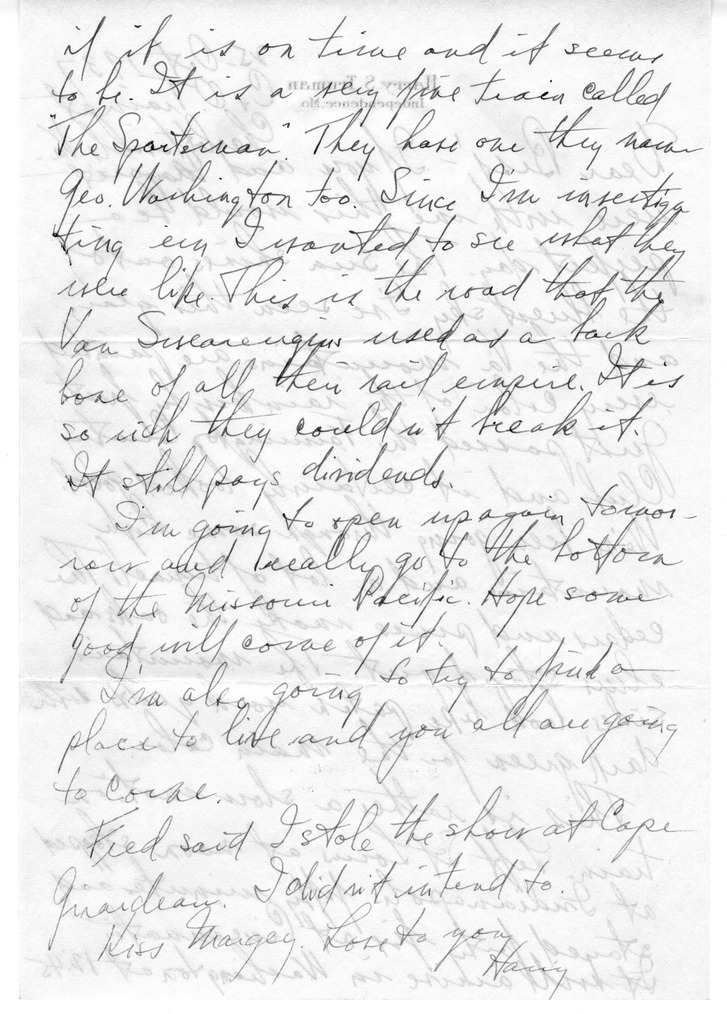 if it is on time and it seems
to be. It is a very fine train called
"The Sportsman". They have one they name
Geo. Washington too. Since I'm investiga
ting em I wanted to see what they
were like. This is the road that the
Van Swearengins used as a back
bone of all their rail empire. It is
so rich they couldn't break it.
It still pays dividends.
I'm going to open up again tomor-
row and really go to the bottom
of the Missouri Pacific. Hope some
good will come of it.
I'm also going to try to find a
place to live and you all are going
to come.
Fred said I stole the show at Cape
Girardeau. I didn't intend to.
Kiss Margey. Love to you
Harry